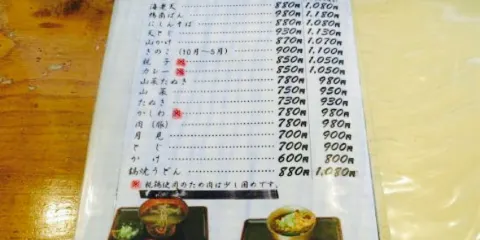 海老天 880円 1,080円
鴨南ばん 980円 1,180円
にしんそば 880円 1,080円
天とじ 930円 1,130円
山かけ 870円 1,070円
きのこ(10月～5月) 900円 1,100円
親子 850円 1,050円
カレー 850円 1,050円
山菜たぬき 780円 980円
山菜 750円 950円
たぬき 730円 930円
かしわ 780円 980円
肉(豚) 780円 980円
月見 700円 900円
とじ 700円 900円
かけ 600円 800円
鍋焼うどん 880円 1,080円
鶏使用のため肉は少し固めです。